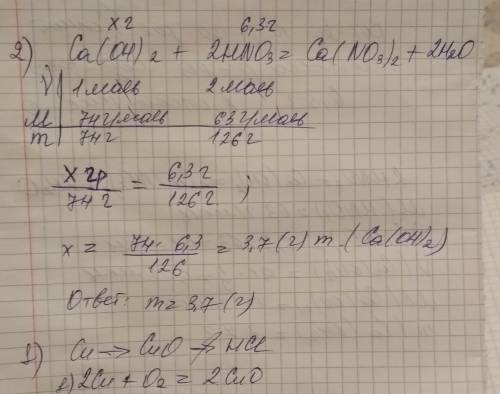 х г 6,3 г
2) Ca(OH)2 + 2HNO3 = Ca(NO3)2 + 2H2O
ν 1 моль 2 моль
M 74 г/моль 63 г/моль
m 74 г 126 г
х гр / 74 г = 6,3 г / 126 г ;
х = 74 · 6,3 / 126 = 3,7 (г) m (Ca(OH)2)
Ответ: m = 3,7 (г)
1) Cu → CuO → HCl
1) 2Cu + O2 = 2CuO